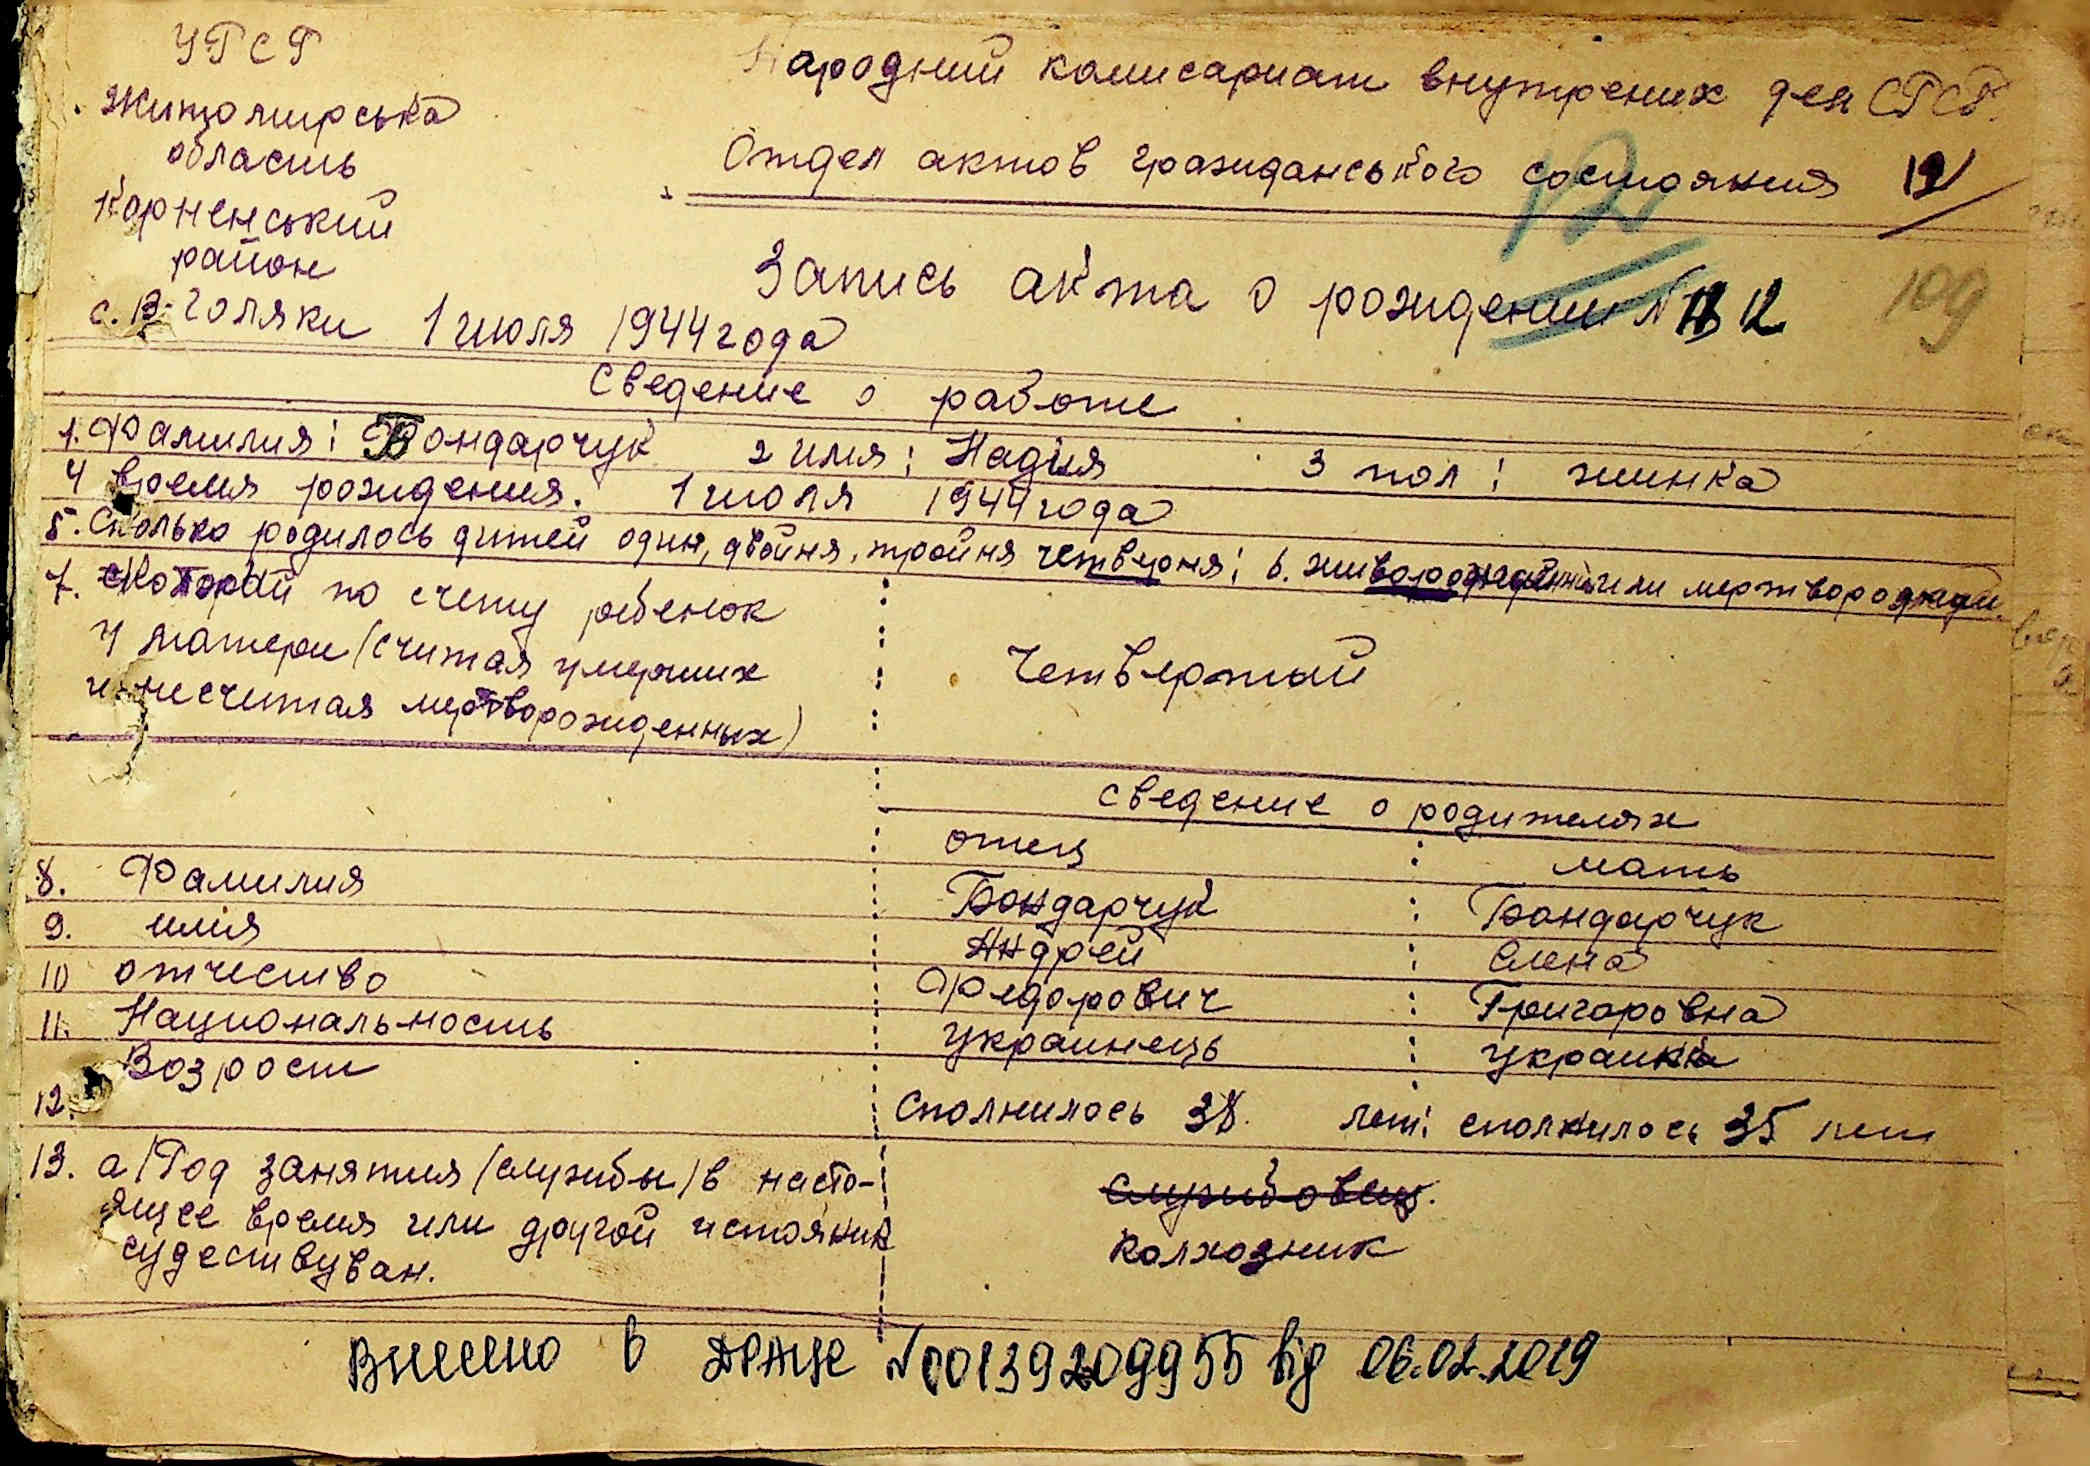 УРСР
Житомирська
область
Корненський
район
с. В-Голяки 1 июля 1944 года
Народний комисариат внутрених дел СРСР.
Отдел актов гражиданського состояния 12
12
Запись акта о рождении N 12
109
Сведение о работе
1. Фамилия: Бондарчук 2 имя: Надия 3 пол: жинка
4 время рождения. 1 июля 1944 года
5. Сколько родилось дитей один, двойня, тройня четверня: 6. живорожденный или мертворожден
7. Который по счету ребенок
у матери (считая умерших
и несчитая мертворожденных)
Четвертый
сведение о родителях
отец мать
8. Фамилия Бондарчук Бондарчук
9. имия Андрей Елена
10 отчество Федорович Григоровна
11. Национальность украинець украинка
12. Возрост сполнилось 38. лет: сполнилось 35 лет
13. а/Род занятия/службы/в насто-
ящее время или другой истояник
судествуван.
служибовец.
Колхозник
Внесено в ДРАЦС N00139209955 від 06.02.2019